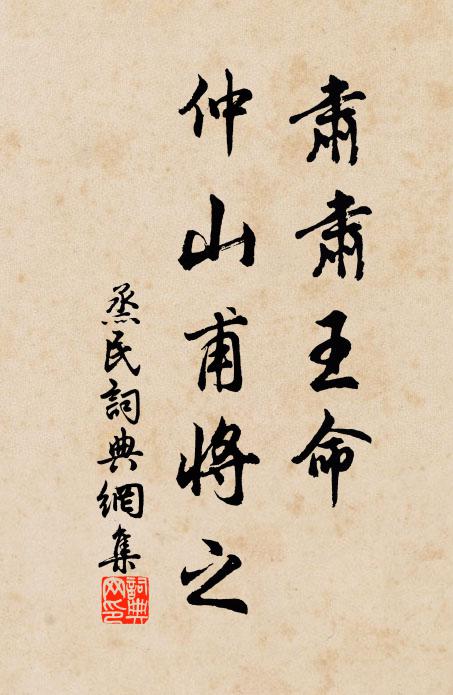 肅肅王命
仲山甫將之
烝民詞典網集
詞典網印